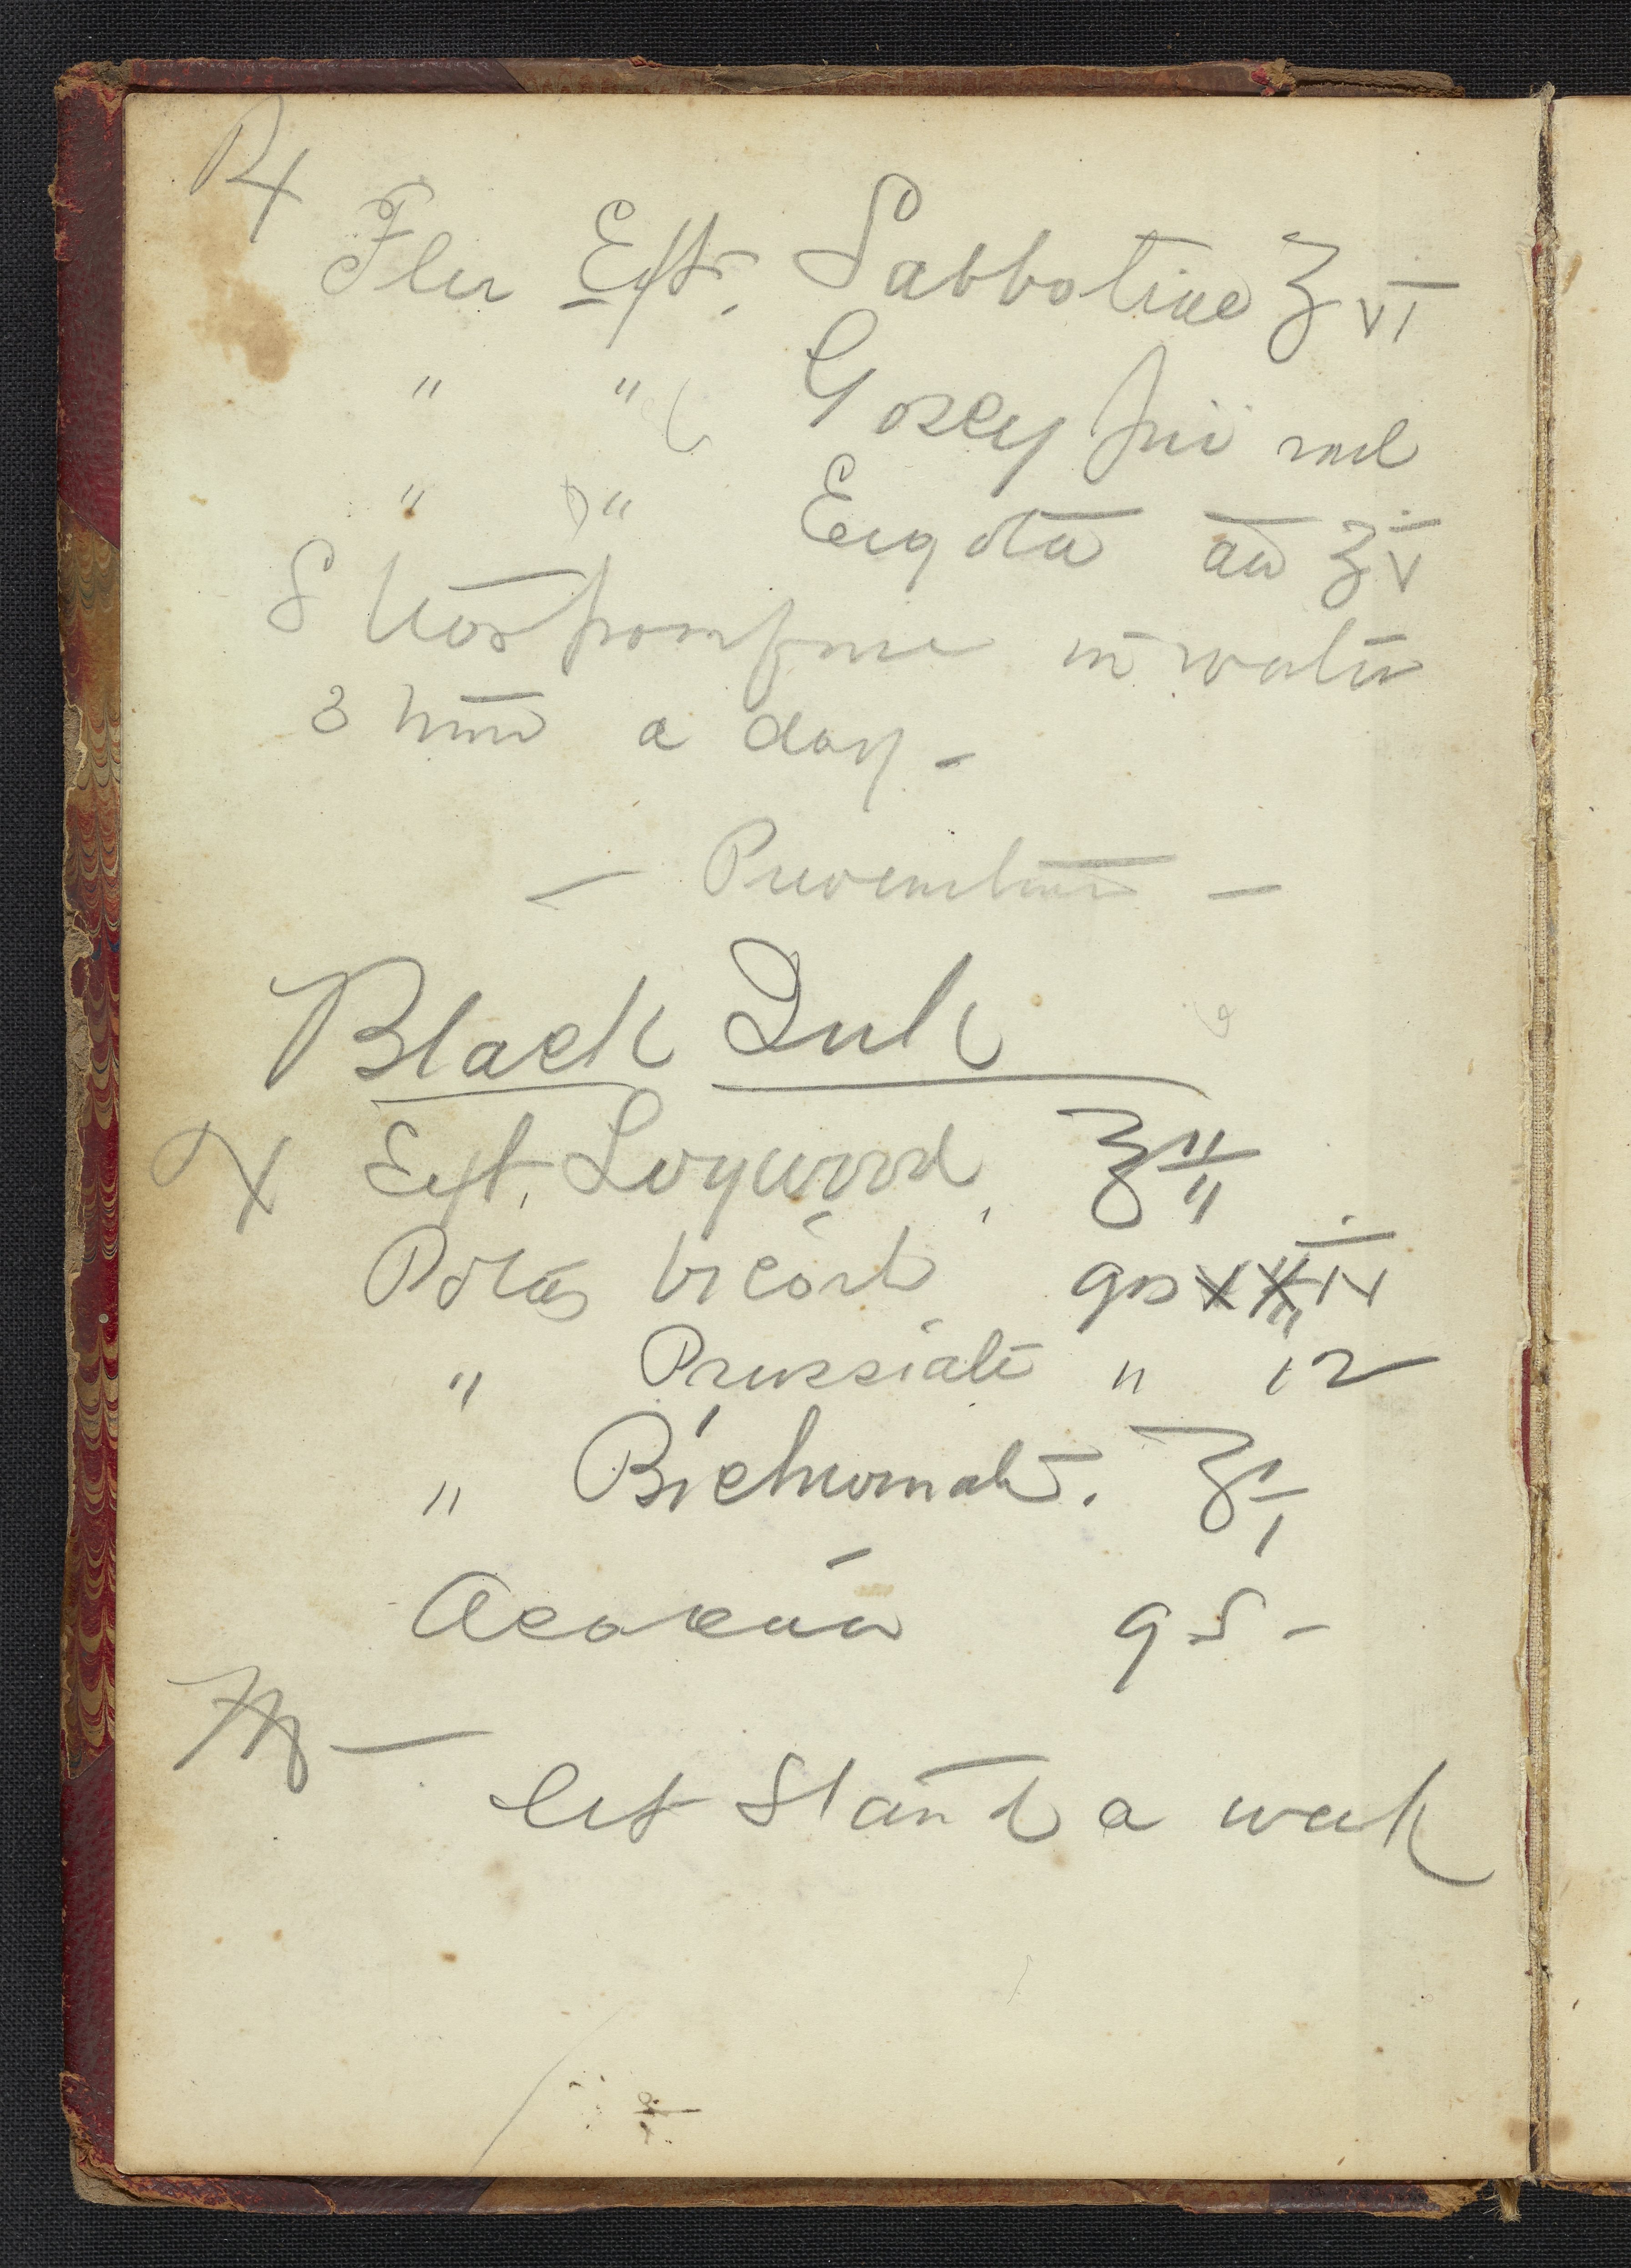 ℞
Flu Ext. Sabbatiae ℥ vi
" " Gossypii rad
" " Ergota aa ℥ v
S in water
3 times a day -
— Prevention —
Black Ink
℞ Ext. Logwood ℥ ii
Potas bicarb grs iv
" Prussiate " 12
" Bichromate. ℥ i
Acacia qs -
M —
let stand a week